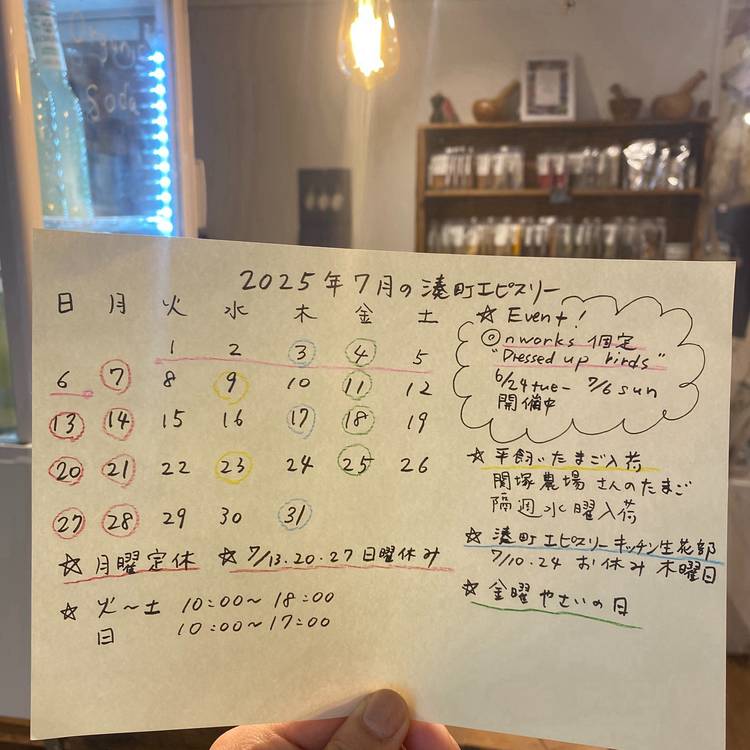 Soda
2025年7月の湊町エピスリー
日 月 火 水 木 金 土
1 2 3 4 5
6 7 8 9 10 11 12
13 14 15 16 17 18 19
20 21 22 23 24 25 26
27 28 29 30 31
☆ 月曜定休 ☆ 7/13.20.27 日曜休み
☆ 火〜土 10:00〜18:00
日 10:00〜17:00
☆ Event!
◎nworks 個定
"Dressed up birds"
6/24tue- 7/6 sun
開催中
☆ 平飼いたまご入荷
関塚農場さんのたまご
隔週水曜入荷
☆ 湊町エピスリーキッチン生花部
7/10.24 お休み 木曜日
☆ 金曜やさいの日